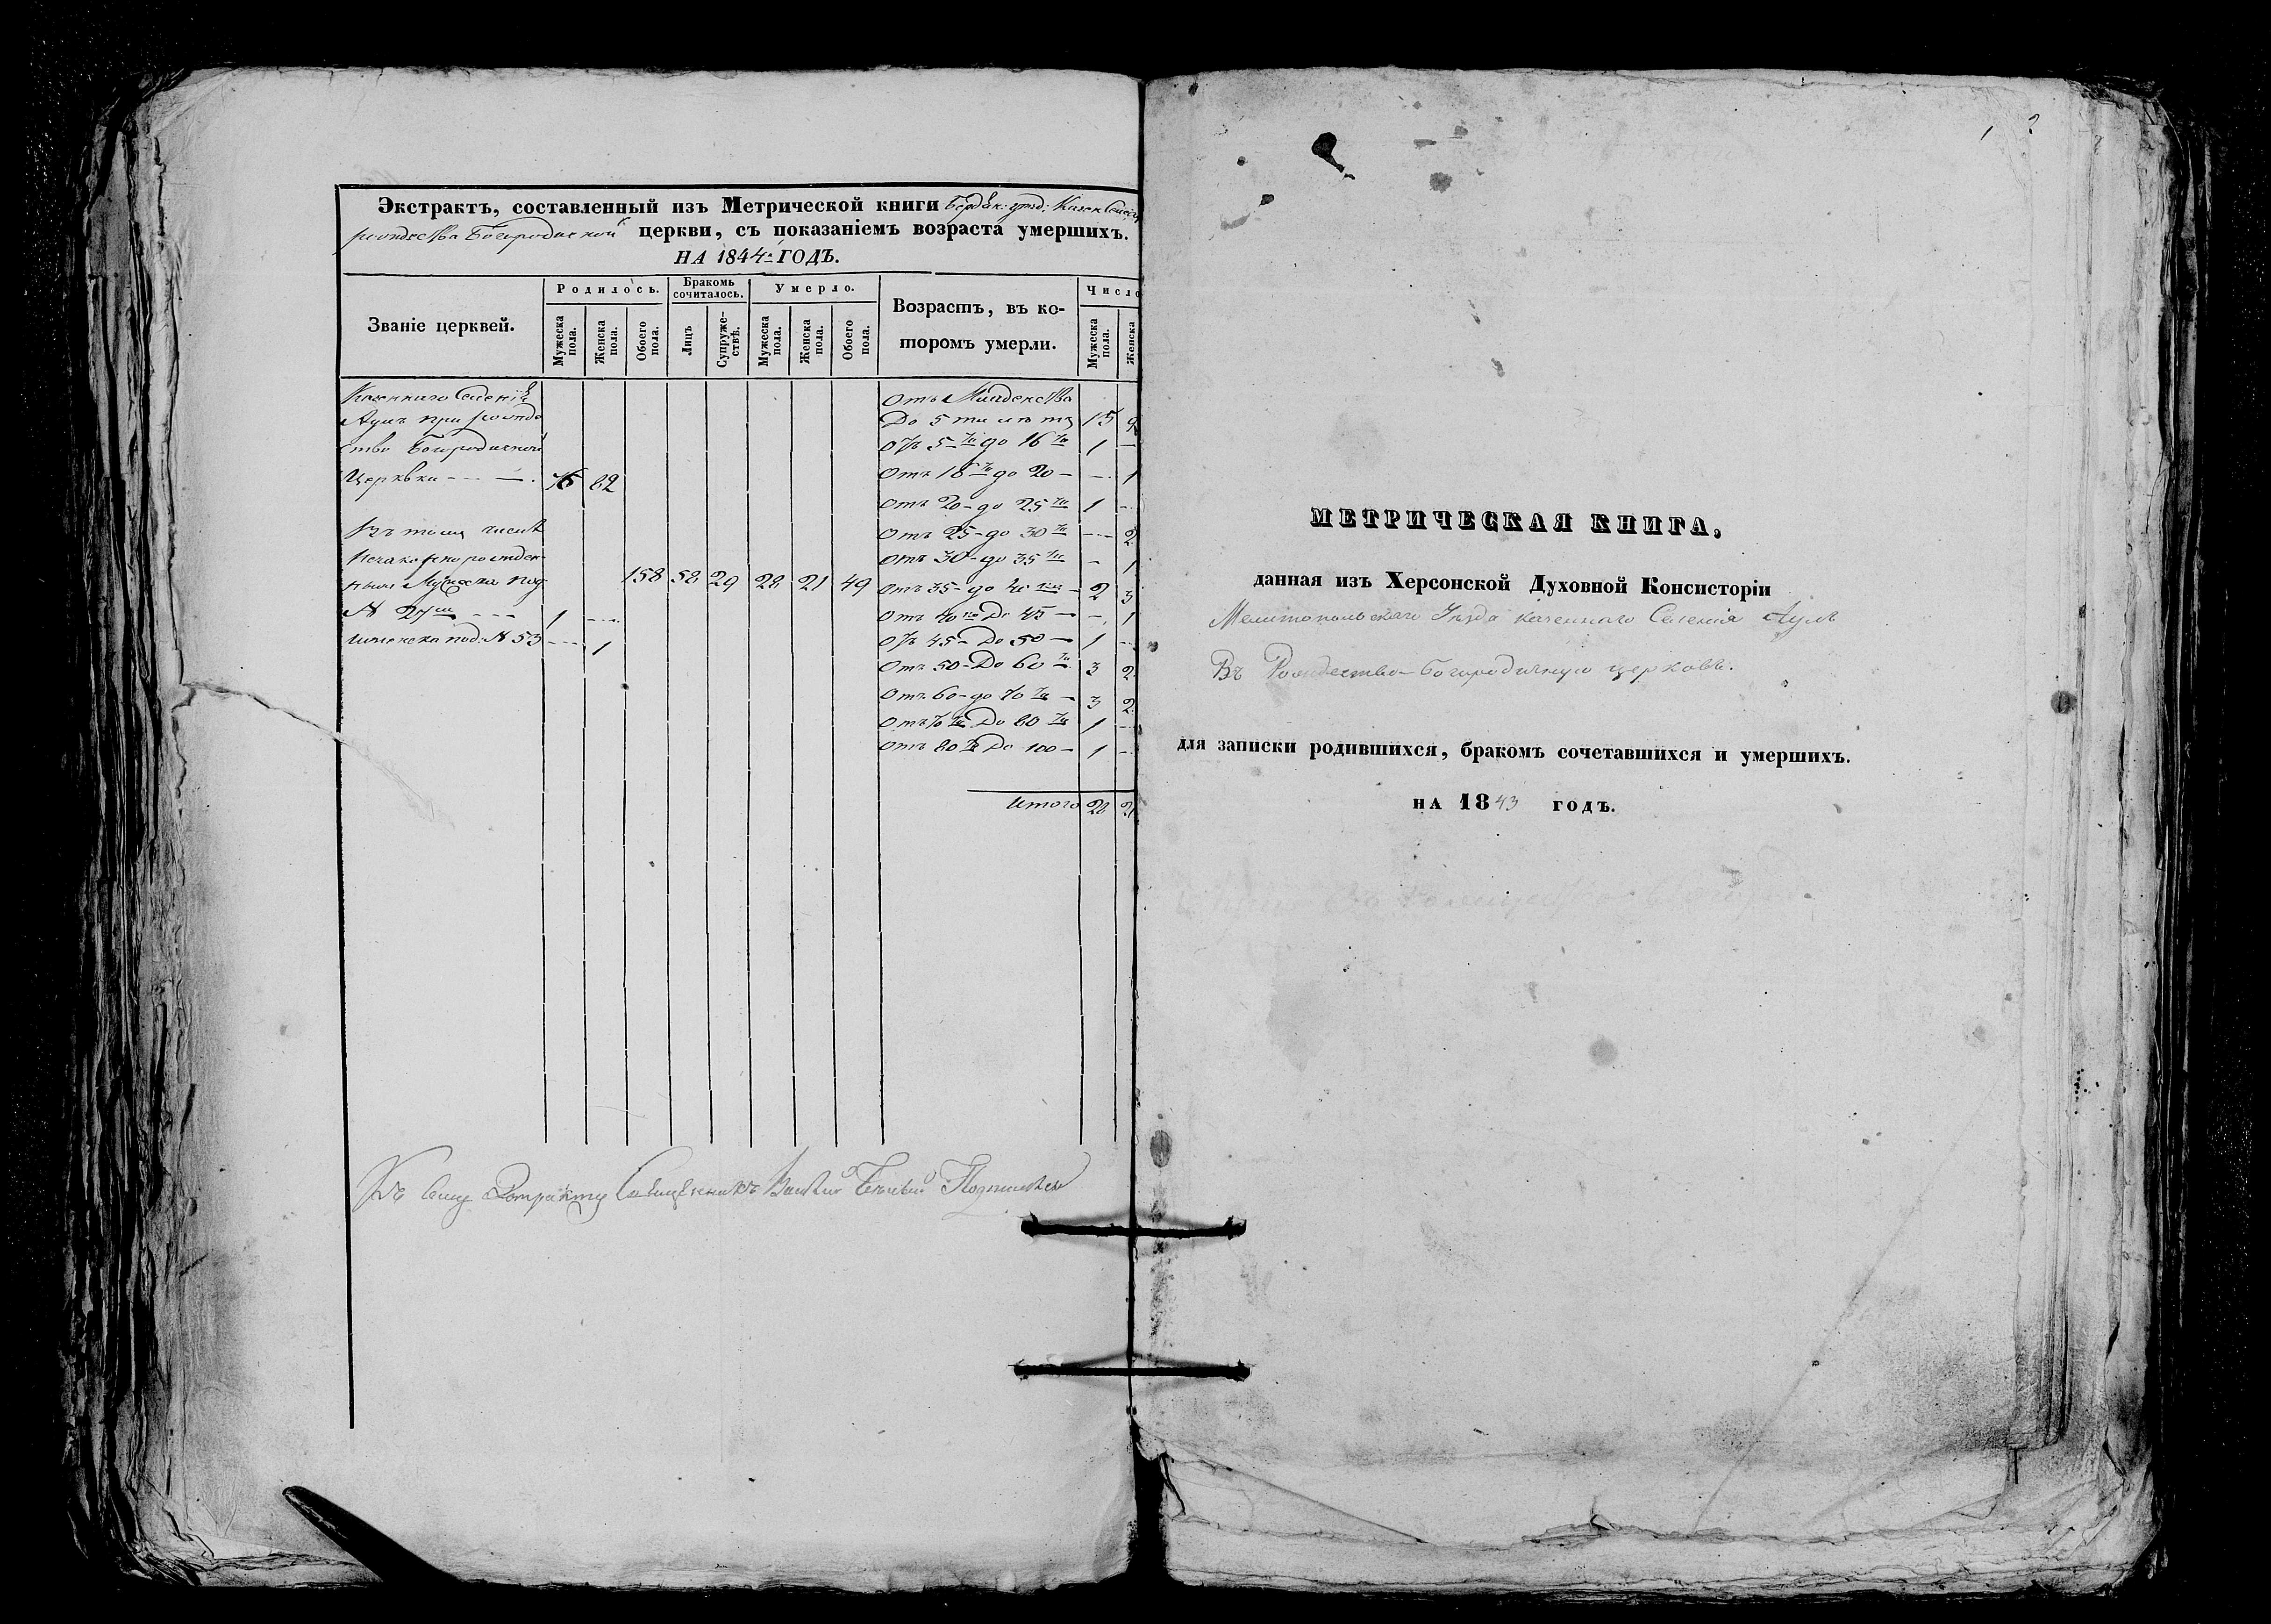 Экстрактъ, составленный изъ Метрической книги Бердян: уѣзд: Казен Селенія
рождества Богородичной церкви, съ показаніемъ возраста умершихъ.
НА 1844й ГОДЪ.
Званіе церквей.
Родилось.
Мужеска пола.
Женска пола.
Обоего пола.
Бракомъ сочиталось.
Лицъ
Супружествъ.
Умерло.
Мужеска пола.
Женска пола.
Обоего пола.
Возрастъ, въ которомъ умерли.
Число
Мужеска пола.
Женска
Казеннаго Селенія
Аулъ при рождe
ство Богородичной
Церкви - - - — . 76 82
Въ томъ числѣ
Незаконнорожден-
ныхъ Мужеска под:
№ 27м - - - 1 - - -
женска под: № 53 - - - 1
158 58 29 28 21 49
Отъ Младенства
До 5 ти лѣтъ 15 9
Отъ 5-ти до 16 ти 1 —
Отъ 16 ти до 20 — — 1
Отъ 20 - до 25 ти 1 —
Отъ 25 - до 30 ти — 2
Отъ 30 - до 35 ти - 1
Отъ 35 - до 40 — 2 3
Отъ 40 До 45 — — 1
Отъ 45 - До 50 — 1 —
Отъ 50 - До 60 ти 3 2
Отъ 60 - до 70 ти — 3 2
Отъ 70 ти До 80 ти 1 —
Отъ 80 ти До 100 — 1 —
Итого 28 21
Къ сему Экстракту Священникъ Подписался
МЕТРИЧЕСКАЯ КНИГА,
данная изъ Херсонской Духовной Консисторіи
Мелитопольскаго Уѣзда казеннаго Селенія Аулъ
Въ Рождество-Богородичную церковь.
для записки родившихся, бракомъ сочетавшихся и умершихъ.
НА 1843 ГОДЪ.